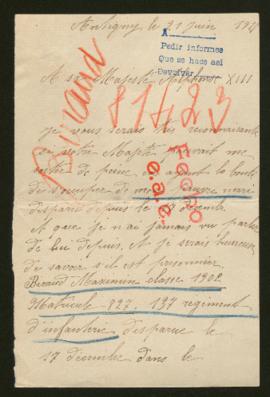 Antigny le 21 juin
A
Pedir informes
Que se hace así
Devolver
A sa Majesté Alphonse XIII
Biraud
81423
je vous serais très reconnaissante
si votre Majesté pouvait me
de peine ayant la bonté
de s'occuper de mon pauvre mari
disparu depuis le
et que je n'ai jamais eu parler
de lui depuis. et je serais heureuse
de savoir s'il est prisonnier
Biraud Maximin classe 1902
Matricule 827. 137 régiment
d'infanterie disparue le
17 décembre dans le